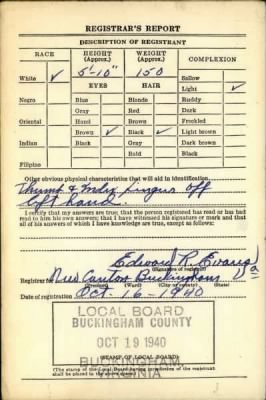 REGISTRAR'S REPORT
DESCRIPTION OF REGISTRANT
RACE HEIGHT (Approx.) WEIGHT (Approx.) COMPLEXION
White ✓ 5'-10" 150 Sallow
EYES HAIR Light ✓
Negro Blue Blonde Ruddy
Gray Red Dark
Oriental Hazel Brown Freckled
Brown ✓ Black ✓ Light brown
Indian Black Gray Dark brown
Bald Black
Filipino
Other obvious physical characteristics that will aid in identification
Thumb & Index fingers off
left hand.
I certify that my answers are true; that the person registered has read or has had
read to him his own answers; that I have witnessed his signature or mark and that
all of his answers of which I have knowledge are true, except as follows:
Edward R. Evans
(Signature of registrar)
Registrar for New Canton Buckingham Va
(Precinct) (Ward) (City or county) (State)
Date of registration Oct. 16-1940
LOCAL BOARD
BUCKINGHAM COUNTY
OCT 19 1940
BUCKINGHAM,
VIRGINIA
(STAMP OF LOCAL BOARD)
(The stamp of the Local Board having jurisdiction of the registrant
shall be placed in the above space.)